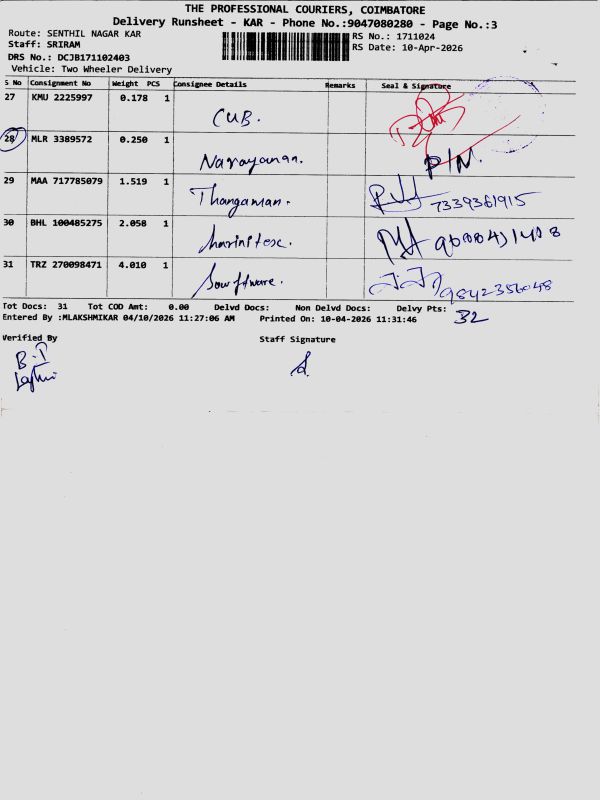 THE PROFESSIONAL COURIERS, COIMBATORE
Delivery Runsheet - KAR - Phone No.:9047080280 - Page No.:3
Route: SENTHIL NAGAR KAR
RS No.: 1711024
Staff: SRIRAM
RS Date: 10-Apr-2026
DRS No.: DCJB171102403
Vehicle: Two Wheeler Delivery
S No Consignment No Weight PCS Consignee Details Remarks Seal & Signature
27 KMU 2225997 0.178 1 CUB.
28 MLR 3389572 0.250 1 Narayanan. P/M.
29 MAA 717785079 1.519 1 Thangaman. 7339361915
30 BHL 100485275 2.058 1
31 TRZ 270098471 4.010 1 9842356048
Tot Docs: 31 Tot COD Amt: 0.00 Delvd Docs: Non Delvd Docs: Delvy Pts: 32
Entered By :MLAKSHMIKAR 04/10/2026 11:27:06 AM Printed On: 10-04-2026 11:31:46
Verified By Staff Signature